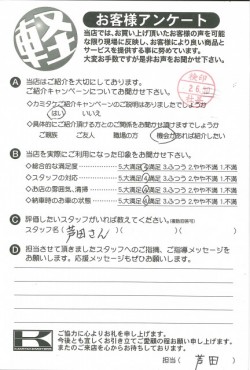 軽
お客様アンケート
当店では、お買い上げ頂いたお客様の声を可能
な限り現場に反映し、お客様により良い商品と
サービスを提供する事に努めています。
大変お手数ですが是非お声をお聞かせ下さい。
検印
A 当店はご紹介を大切にしております。
ご紹介キャンペーンについてお聞かせ下さい。
◇カミタケご紹介キャンペーンのご説明はありましたでしょうか
はい いいえ
◇具体的にご紹介頂ける方とのご関係をお聞かせ頂けますでしょうか
ご親族 ご友人 職場の方 機会があれば紹介したい
B 当店を実際にご利用になった印象をお聞かせ下さい。
◇総合的な満足度 5.大満足 4.満足 3.ふつう 2.やや不満 1.不満
◇スタッフの対応 5.大満足 4.満足 3.ふつう 2.やや不満 1.不満
◇お店の雰囲気、清掃 5.大満足 4.満足 3.ふつう 2.やや不満 1.不満
◇納車時のお車の状態 5.大満足 4.満足 3.ふつう 2.やや不満 1.不満
C 評価したいスタッフがいれば教えてください。(複数回答可)
スタッフ名( 芦田さん )
D 担当させて頂きましたスタッフへのご指摘、ご指導メッセージを
お願いします。応援メッセージもぜひお願いします。
K
ご協力に心よりお礼を申し上げます。
今後とも宜しくお引き立てご愛顧の程お願い申し上げます。
またのご来店を心からお待ちしております。
担当( 芦田 )